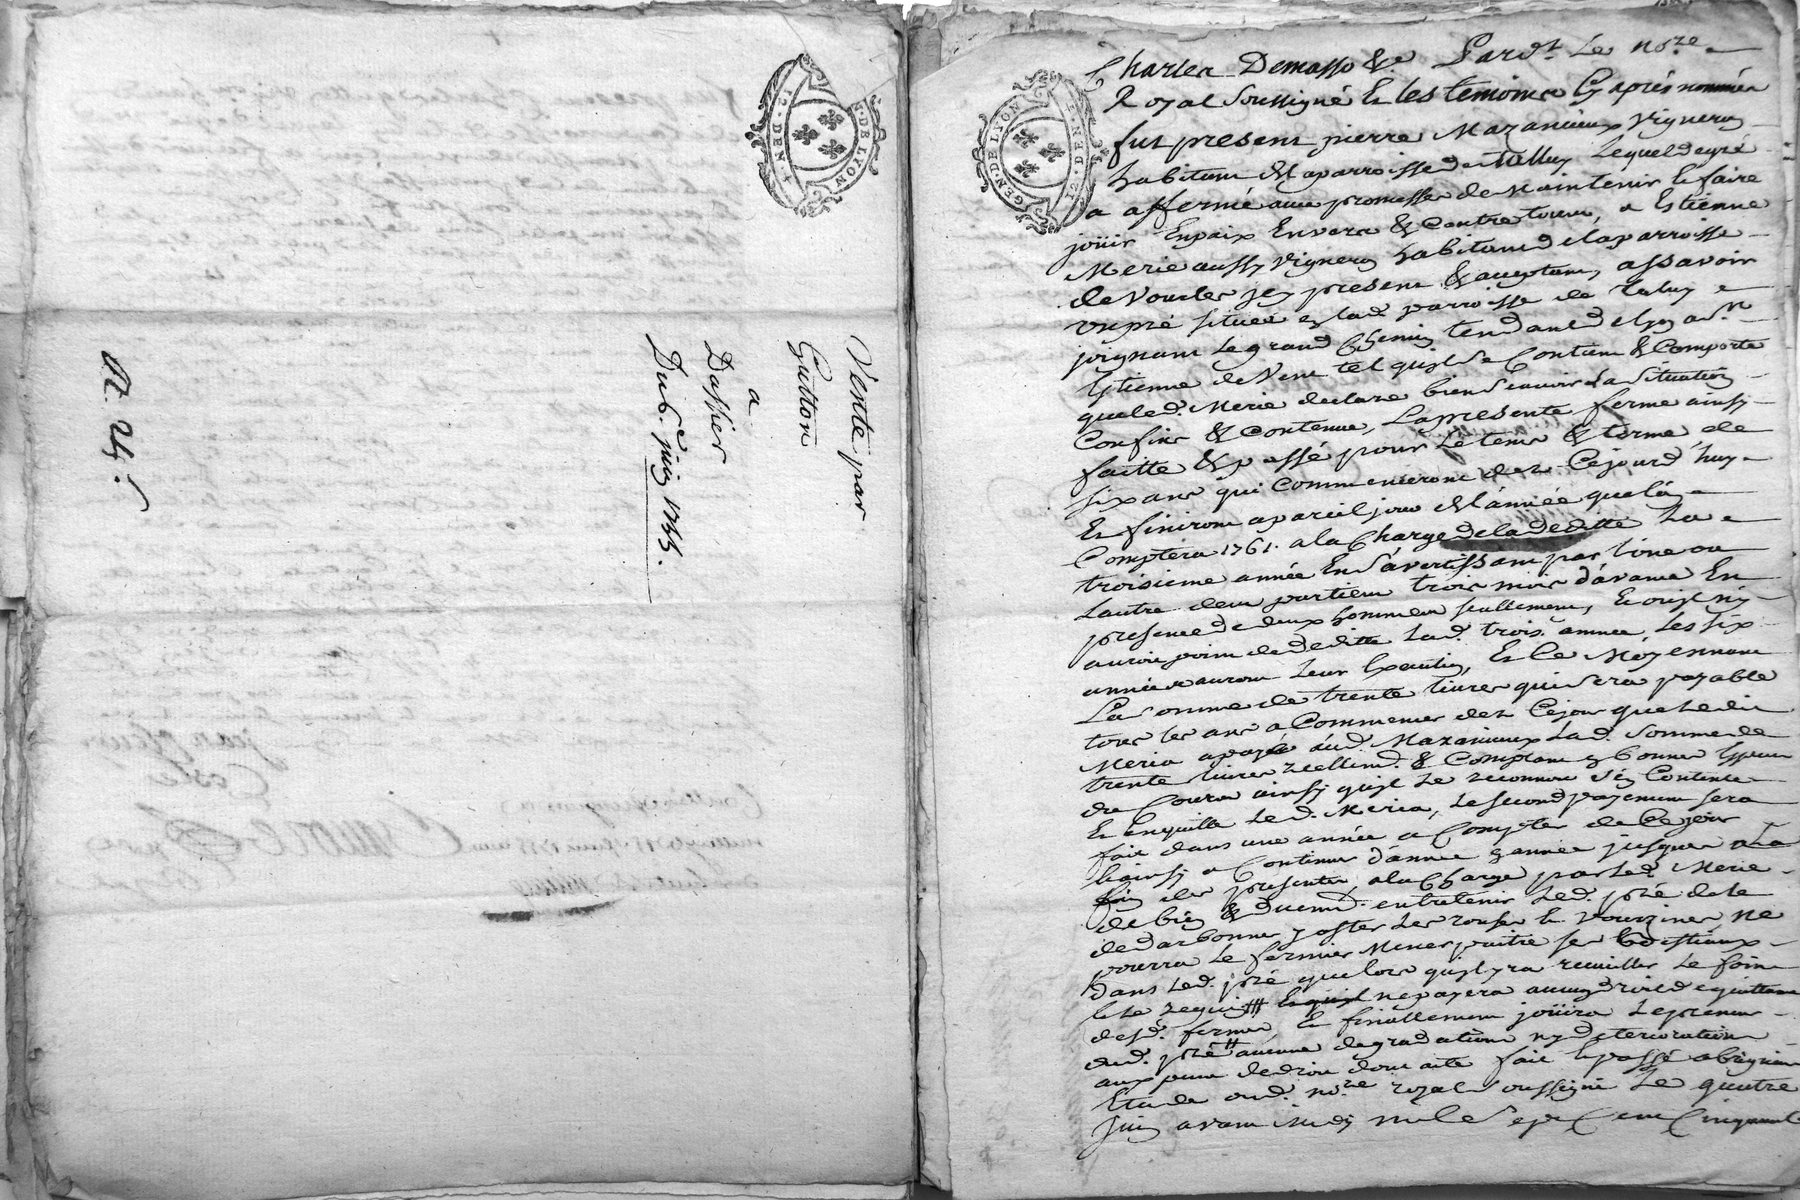 GEN·DE LYON
12·DEN·
Vente par
Gutton
a
Dassier
Du 6e juin 1755.
N. 25.
GEN·DE LYON
12·DEN·
Charles Demasso &c Pardt Le nore
Royal soussigné Et les temoins Cy aprés nommés
fut present pierre Mazancieux vigneron
habitant de la parroisse de talluy Lequel de gré
a affermé avec promesse de Maintenir Et faire
joüir En paix Envers & Contre tous, a Estienne
Merie aussy vigneron habitant de la parroisse
de Vourles icy present & acceptant, assavoir
un pré situé en lad. parroisse de taluy
joignant Le grand Chemin tendant de lyon a St
Estienne de Vent tel qu'il se Contient & Comporte
que led. Merie declare bien scavoir La situation
Confins & Contenue, La presente ferme ainsy
faitte & passé pour Le tems & terme de
six ans qui Commenceront dez Cejourd'huy
Et finiront a pareil jour de l'année que l'on
Comptera 1761. a la Charge de la deditte La
troisieme année En s'avertissant par L'une ou
L'autre des parties trois mois d'avance En
presence de deux hommes seullement, Et ou il n'y
auroit point de deditte Lad. trois. année, Les six
années auront Leur Execution, Et Ce Moyennant
La somme de trente livres qui sera payable
tous les ans a Commencer dez Cejour que ledit
Merie a payé aud. Mazancieux Lad. somme de
trente livres reellemt. & Comptant en bonnes Especes
de Cours ainsy qu'il Le reconnoit s'en Contente
Et en quitte Led. Merie, Le second payement sera
fait dans une année a Compter de Ce jour
Et ainsy a Continuer d'année en année jusques a La
fin des presentes, a la Charge par Led. Merie
de bien & duemt. entretenir Led. pré de le
dedarbonner y oster Les ronses Et vourzines ne
pourra Le fermier Mener paitre ses bestiaux
dans Led. pré que lors qu'il y ra recuillir Le foin
Et Le reguin ne payera aucun droit de quittance
desd. fermes Et finallement joüira Le preneur
dud. pré aucune degradation ny deterioration
aux peines de droit dont acte fait Et passé a brignais
Etude dud. nore royal soussigné Le quatre
Juin avant Midy mil sept Cent Cinquante